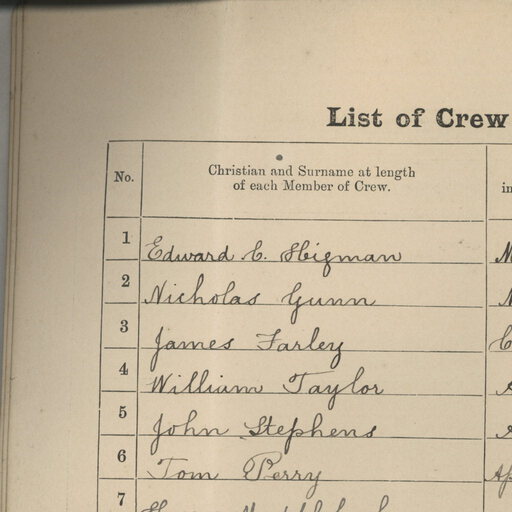 List of Crew
No.
Christian and Surname at length
of each Member of Crew.
in
1 Edward C. Higman
2 Nicholas Gunn
3 James Farley
4 William Taylor
5 John Stephens
6 Tom Perry
7